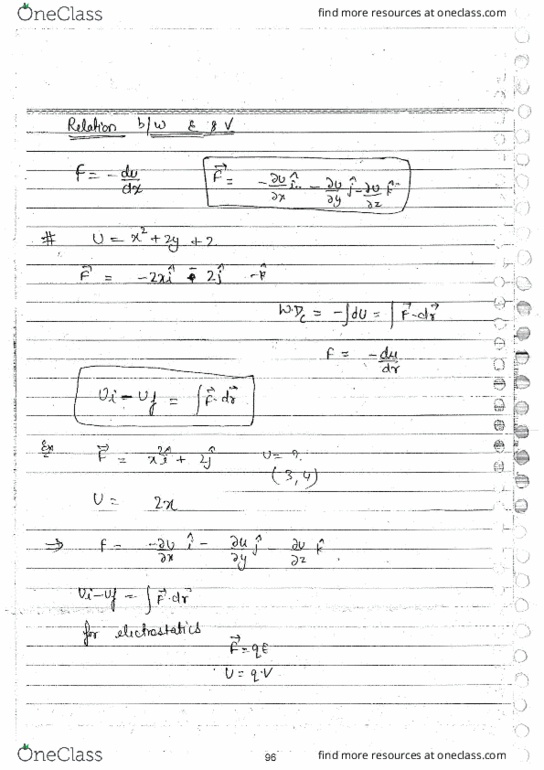 OneClass find more resources at oneclass.com
Relation b/w E & V
F = -du/dx
F⃗ = -∂U/∂x î - ∂U/∂y ĵ - ∂U/∂z k̂
# U = x² + 2y + 2
F⃗ = -2xî - 2ĵ -k̂
W.D_c = -∫dU = ∫F⃗·dr⃗
F = -du/dr
Ui - Uf = ∫F⃗·dr⃗
Ex F⃗ = x²î + 2ĵ U = ?
(3,4)
U = 2x
⇒ F = -∂U/∂x î - ∂U/∂y ĵ - ∂U/∂z k̂
Ui - Uf = ∫F⃗·dr⃗
for electrostatics
F⃗ = qE
U = q.V
OneClass 96 find more resources at oneclass.com